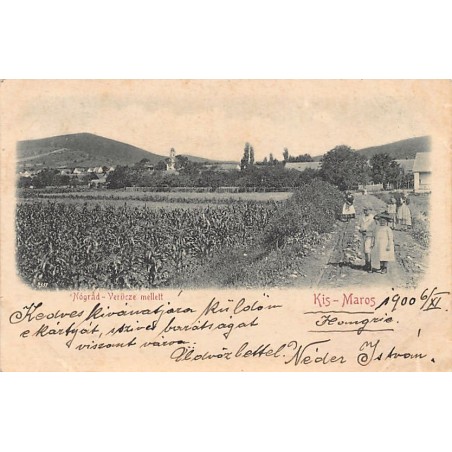 Nógrád - Verőcze mellett
Kis - Maros 1900 6/XI
Hongrie.
Kedves kivanatjára küldöm
e kártyát, szives barátságat
viszont várva.
Üdvözlettel. Néder Istvan.